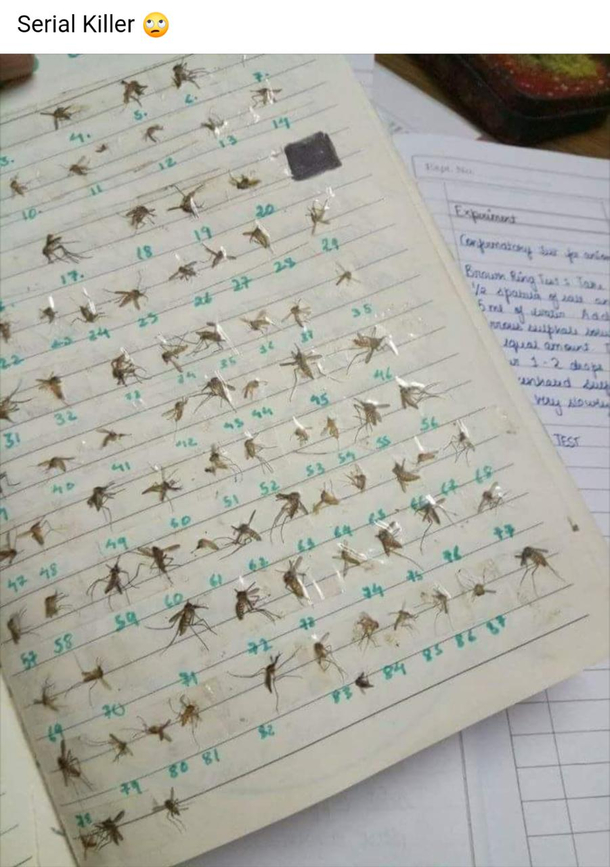 Serial Killer 🙄
3. 4. 5. 6. 7.
10. 11 12 13 14
17. 18 19 20
22 23 24 25 26 27 28 29
31 32 33 34 35 36 37 35
40 41 42 43 44 45 46
47 48 49 50 51 52 53 54 55 56
57 58 59 60 61 62 63 64 65 66 67 68
69 70 71 72 73 74 75 76 77
78 79 80 81 82 83 84 85 86 87
Expt. No.
Experiment
Confirmatory
Brown Ring Test : Take
1/2 spatula of salt
5 ml of water. Add
sulphate
equal amount
1-2 drops
very slowly
TEST